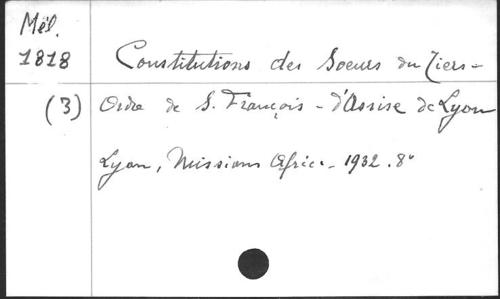 Mél.
1818
(3)
Constitutions des Soeurs du Tiers-
Ordre de S. François-d'Assise de Lyon
Lyon, Missions Afric. - 1932. 8°